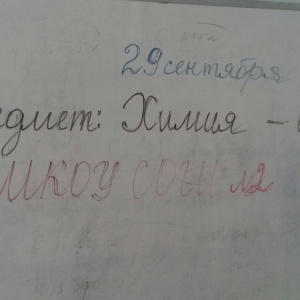 29 сентября
едмет: Химия –
МКОУ СОШ №2